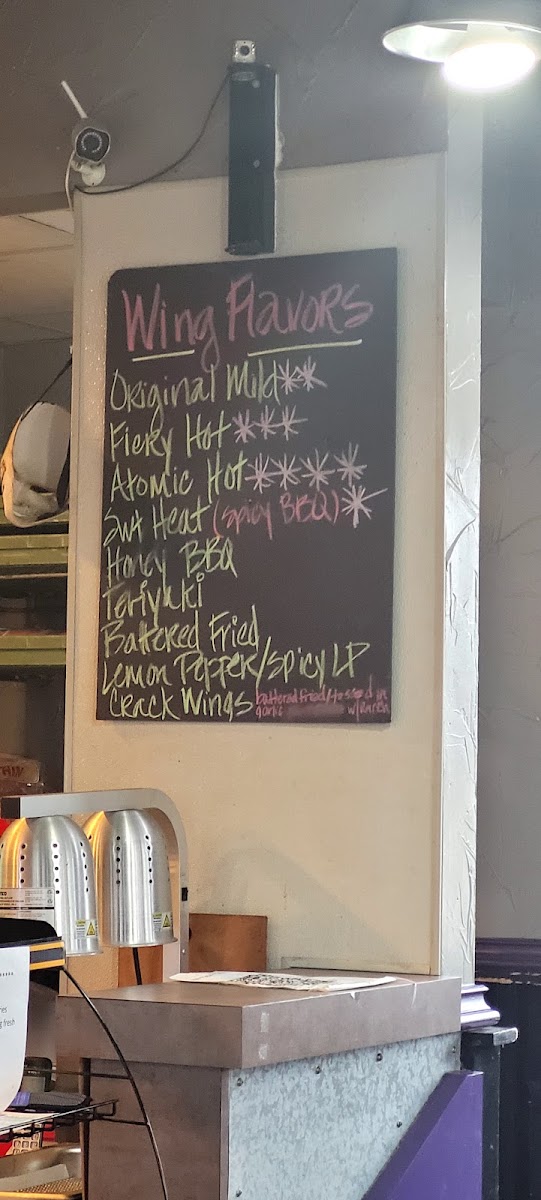 Wing Flavors
Original Mild**
Fiery Hot***
Atomic Hot****
Swt Heat (Spicy BBQ)*
Honey BBQ
Teriyaki
Battered Fried
Lemon Pepper/Spicy LP
Crack Wings battered fried/tossed in
garlic w/Ranch